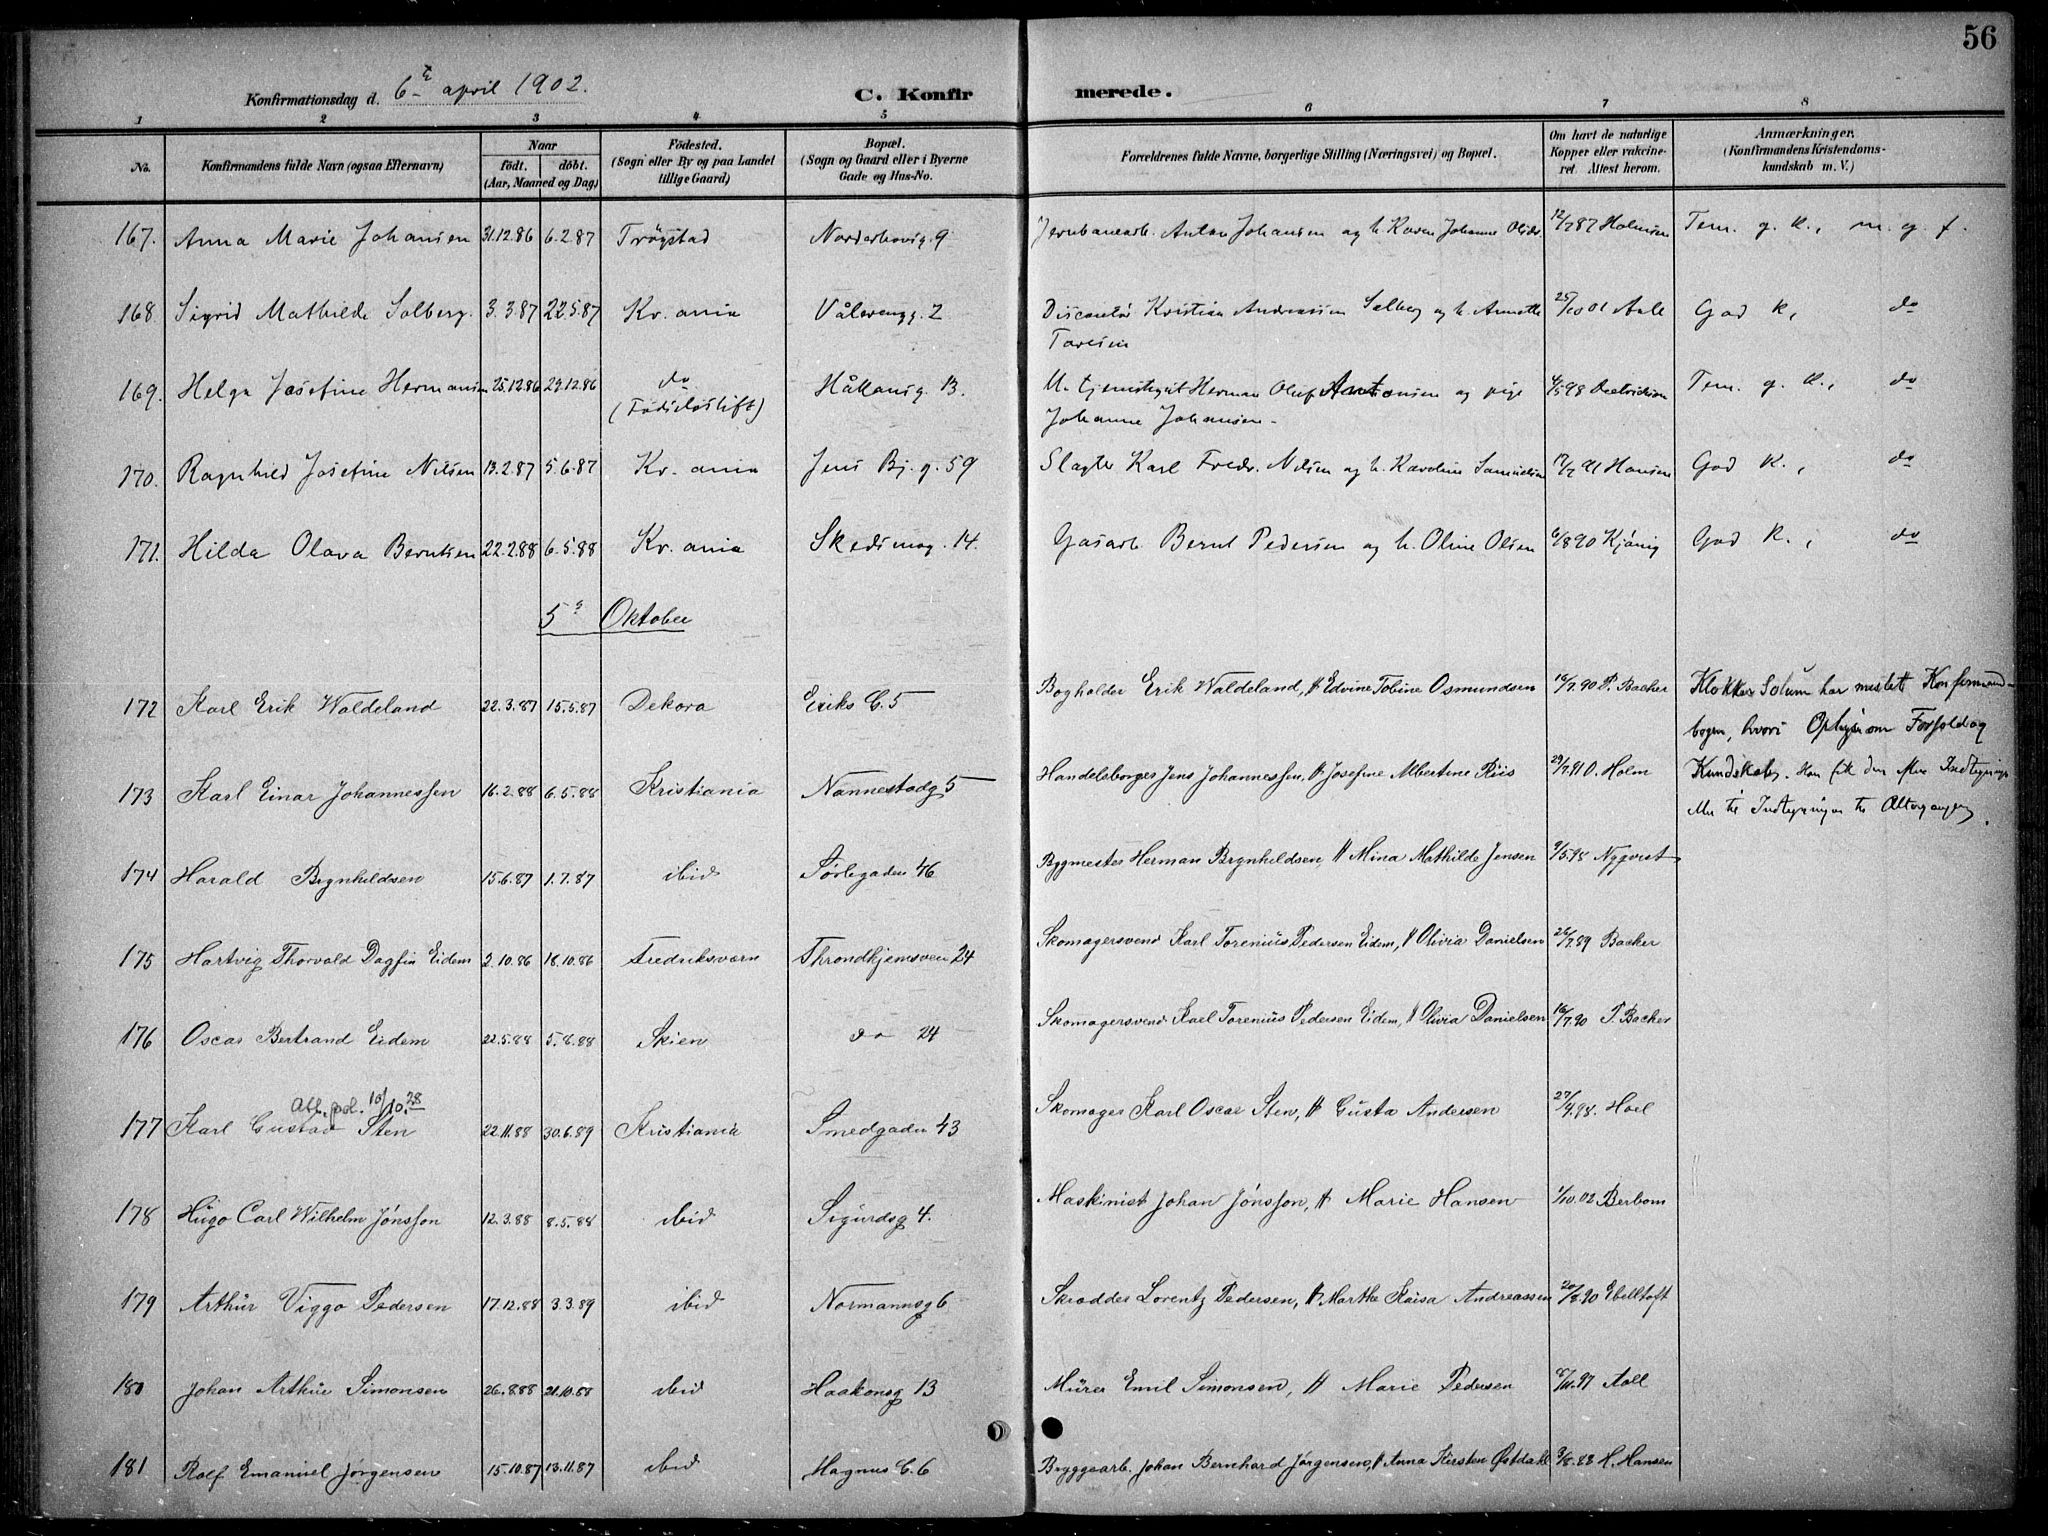 56
Konfirmationsdag d. 6te april 1902. C. Konfirmerede.
1 2 3 4 5 6 7 8
No. Konfirmandens fulde Navn (ogsaa Efternavn) Naar født. døbt. (Aar, Maaned og Dag) Födested. (Sogn eller By og paa Landet tillige Gaard) Bopæl. (Sogn og Gaard eller i Byerne Gade og Hus-No. Forældrenes fulde Navne, borgerlige Stilling (Næringsvei) og Bopæl. Om havt de naturlige Kopper eller vakcineret. Attest herom. Anmærkninger. (Konfirmandens Kristendomskundskab m. V.)
167. Anna Marie Johansen 31.12.86 6.2.87 Trøgstad Norderhovsg. 9 Jernbanearb. Anton Johansen og h. Karen Johanne 12/7 87 Holmsen Tem. g. K., m. og f.
168. Sigrid Mathilde Solberg. 3.3.87 22.5.87 Kr.ania Vålerengg. 2 Kristian Andreassen Solberg og h. Annette 25/10 01 Aall God K, do
169. Helga Josefine Hermansen 25.12.86 29.12.86 do Håkonsg. 13. Herman Oluf Antonsen og pige 4/5 98 Tem. g. K., do
(Fødselsstift) Johanne Johansen.
170. Ragnhild Josefine Nilsen 13.2.87 5.6.87 Kr.ania Jens Bj. g. 59 Slagter Karl Fredr. Nilsen og h. Karoline Samuelsen Hansen God K., do
171. Hilda Olava Berntsen 22.2.88 6.5.88 Kr.ania Skedsmog. 14. Gasarb. Bernt Pedersen og h. Oline Olsen 6/8 90 Kjønig God K., do
5te Oktober
172 Karl Erik Waldeland 22.3.87 15.5.87 Dekora Eriks G. 5 Bogholder Erik Waldeland, H Edvine Tobine Osmundsen 16/7.90 P. Backer Klokker Solum har mistet Konfirmand-
bogen, hvori Oplysn. om Forhold og
173 Karl Einar Johannessen 16.2.88 6.5.88 Kristiania Nannestadg 5 Handelsborger Jens Johannessen, H Josefine Albertine Riis 29/7.91 O. Holm Kundskaber. Han fik den
til Indtegningen til Altergangen.
174 Harald Brynhildsen 15.6.87 1.7.87 ibid Sørligaden 46 Bygmester Herman Brynhildsen, H Mina Mathilde Jensen 9/5.98 Nyqvist
175 Hartvig Thorvald Dagfin Eidem 2.10.86 18.10.86 Fredriksværn Throndhjemsvei 24 Skomagersvend Karl Torenius Pedersen Eidem, H Olivia Danielsen 26/7.89 Backer
176 Oscar Bertrand Eidem 22.5.88 5.8.88 Skien do 24 Skomagersvend Karl Torenius Pedersen Eidem, H Olivia Danielsen 16/7.90 P. Backer
Att. pol. 10/10.28
177 Karl Gustav Sten 22.11.88 30.6.89 Kristiania Smedgaden 43 Skomager Karl Oscar Sten, H Gusta Andersen 27/4.98. Hoel
178 Hugo Carl Wilhelm Jónsson 12.3.88 8.5.88 ibid Sigurdsg 4. Maskinist Johan Jónsson, H Marie Hansen 1/10.02 Berbom
179 Arthur Viggo Pedersen 17.12.88 3.3.89 ibid Normannsg 6 Skrædder Lorentz Pedersen, H Marthe Kaisa Andreassen 20/8.90 Ebeltoft
180 Johan Arthur Simonsen 26.8.88 21.10.88 ibid Haakonsg 13 Murer Emil Simonsen, H Marie Pedersen Aall
181 Rolf Emanuel Jørgensen 15.10.87 13.11.87 ibid Magnus G. 6 Bryggearb. Johan Bernhard Jørgensen, H Anna Kirsten Østdahl 3/8.88 H. Hansen